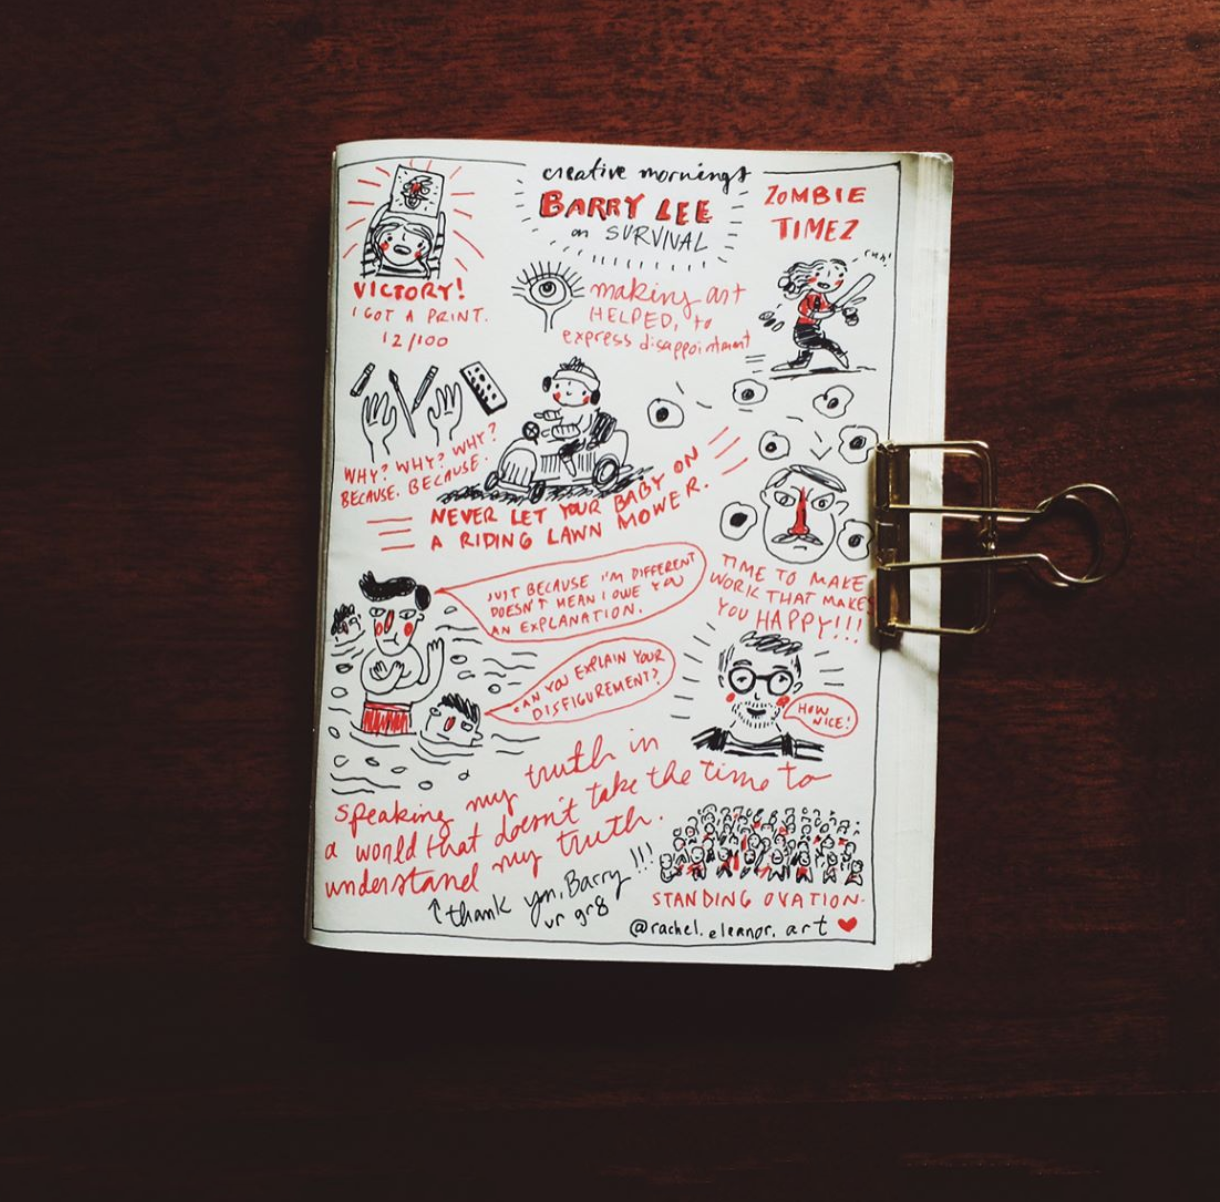 creative mornings
BARRY LEE
on SURVIVAL
ZOMBIE
TIMEZ
run!
VICTORY!
I GOT A PRINT.
12/100
making art
HELPED, to
express disappointment
WHY? WHY? WHY?
BECAUSE. BECAUSE.
NEVER LET YOUR BABY ON
A RIDING LAWN MOWER.
TIME TO MAKE
WORK THAT MAKES
YOU HAPPY!!!
JUST BECAUSE I'M DIFFERENT
DOESN'T MEAN I OWE YOU
AN EXPLANATION.
CAN YOU EXPLAIN YOUR
DISFIGUREMENT?
HOW
NICE!
truth in
speaking my
a world that doesn't take the time to
understand my truth.
↑ thank you, Barry !!!
ur gr8
STANDING OVATION.
@rachel.eleanor.art ♥